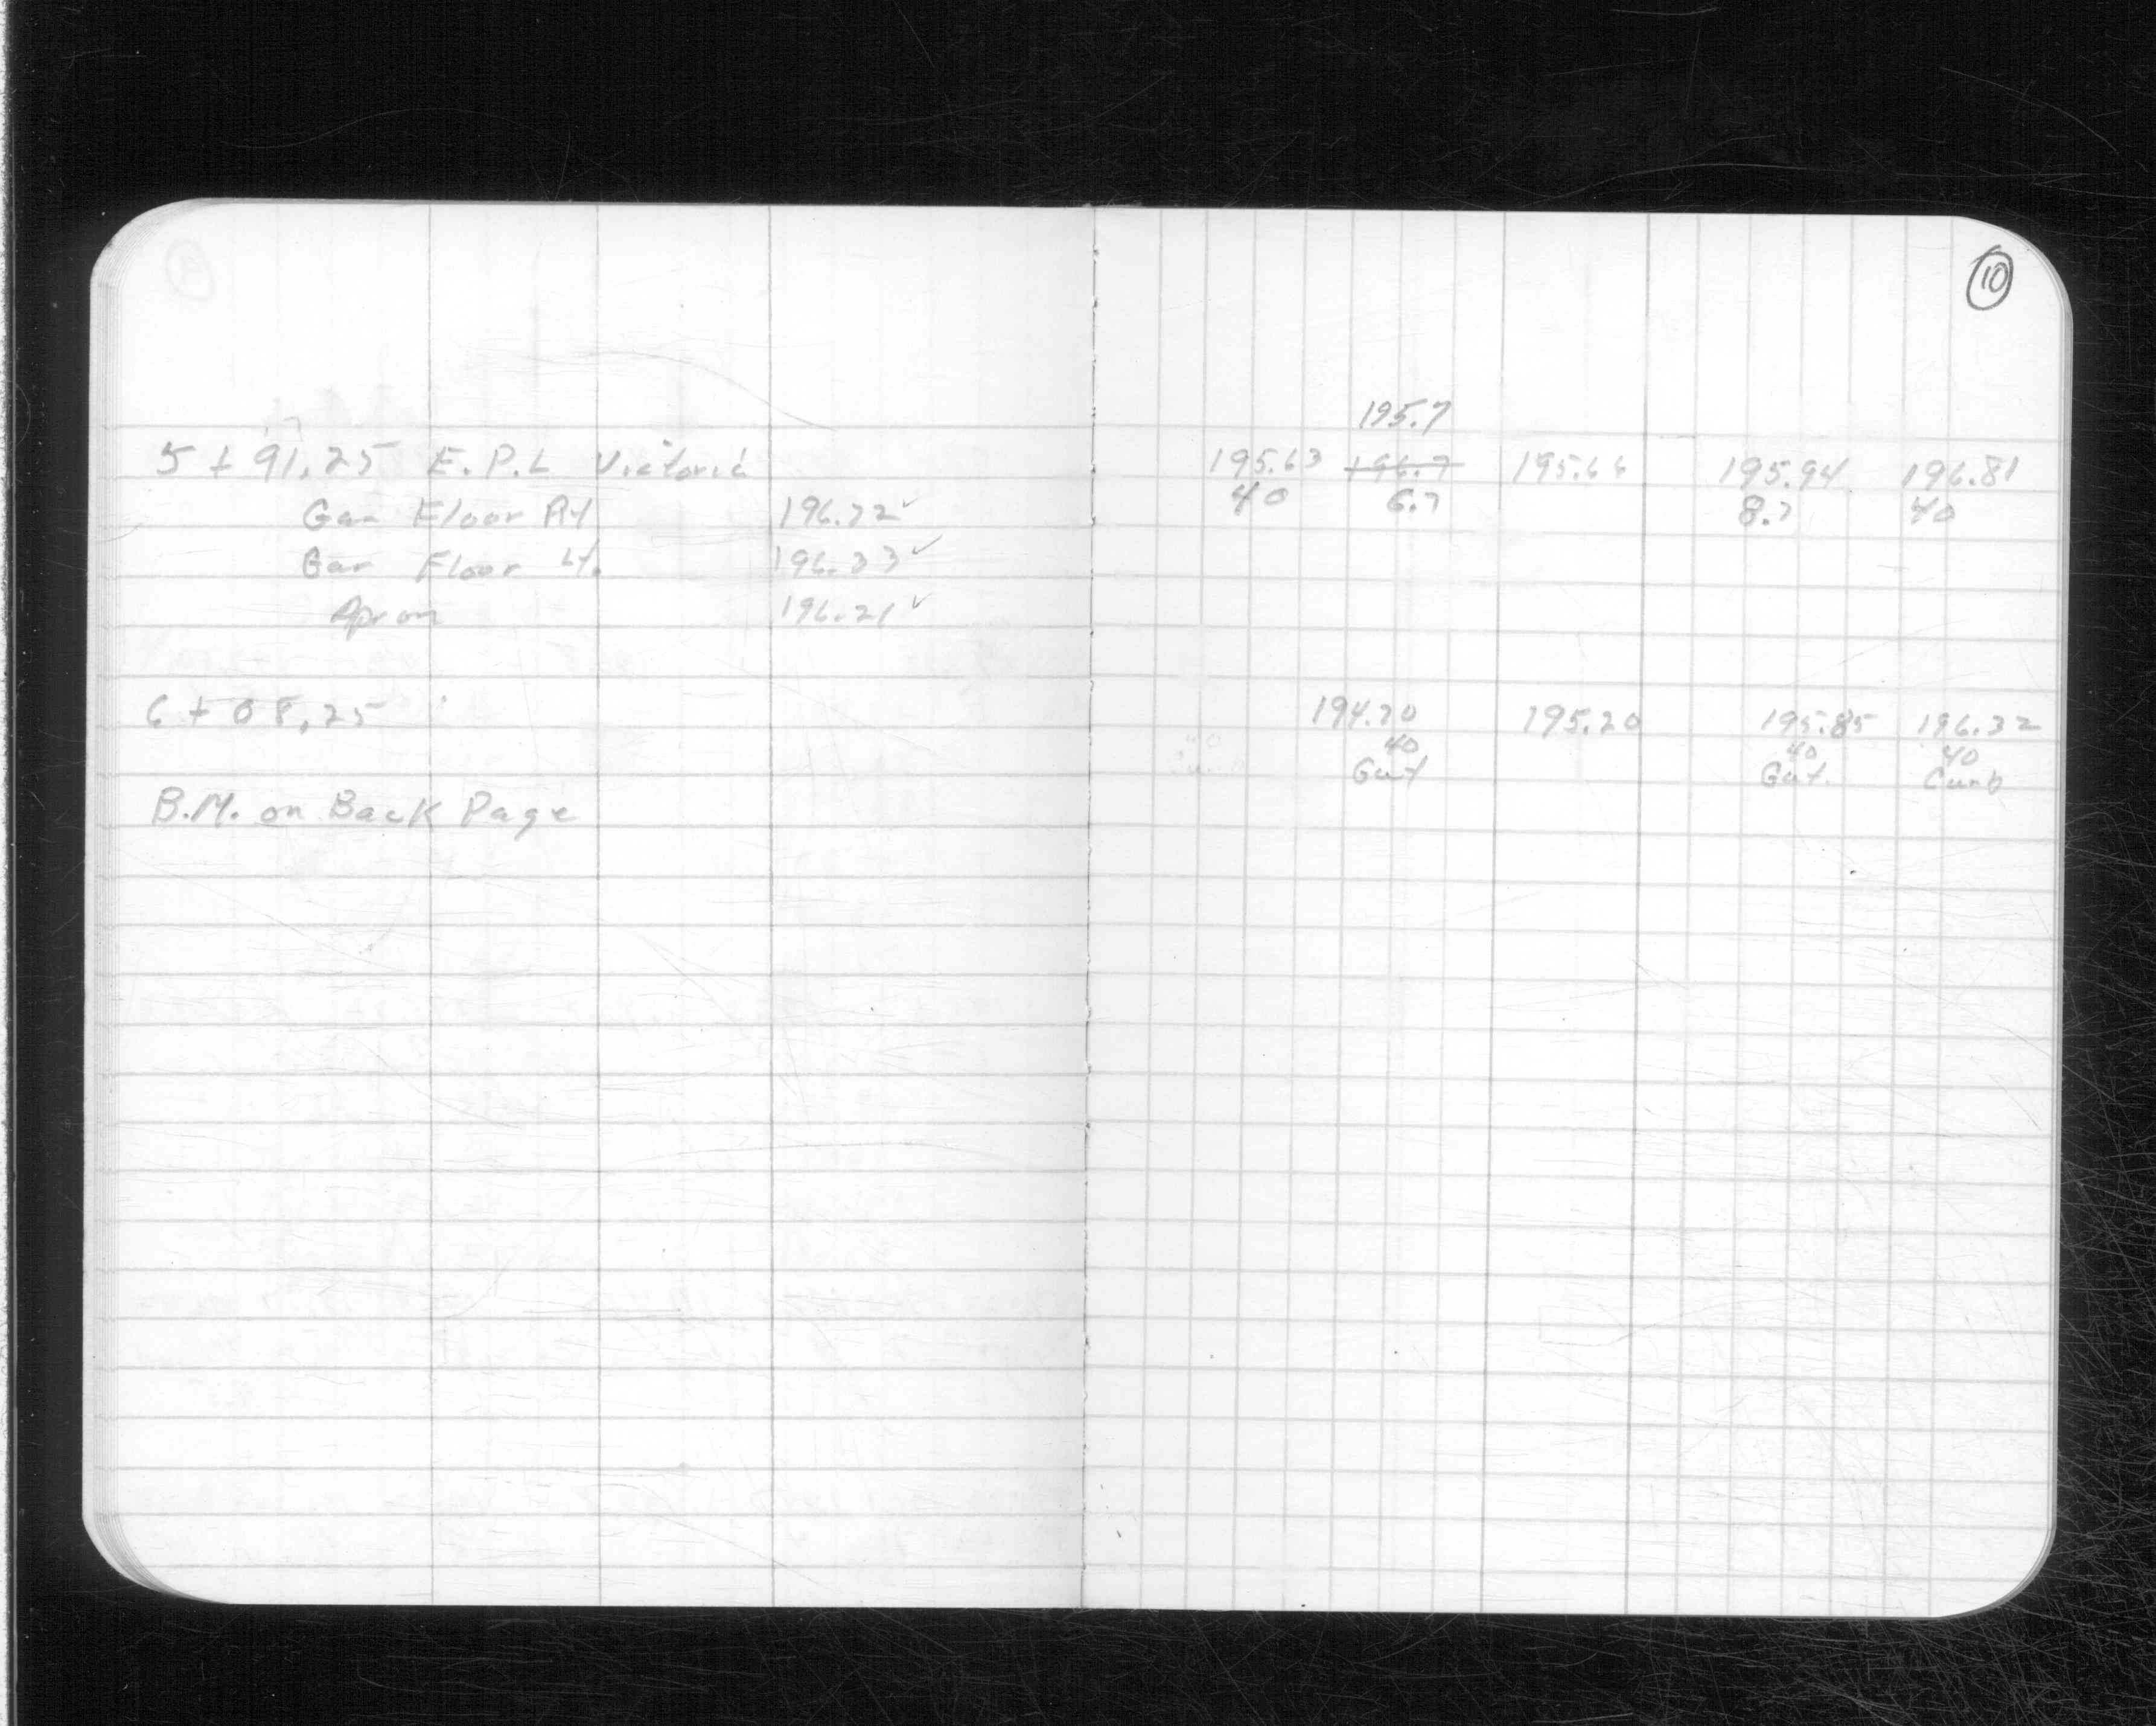 10
195.7
5 + 91.25 E.P.L Victoria 195.63 196.7 195.66 195.94 196.81
40 6.7 8.7 40
Gar Floor Rt 196.22 ✓
Gar Floor Lt. 196.33 ✓
Apron 196.21 ✓
6 + 08.25 194.70 195.20 195.85 196.32
40 40 40
Gut Gut. Curb
B.M. on Back Page